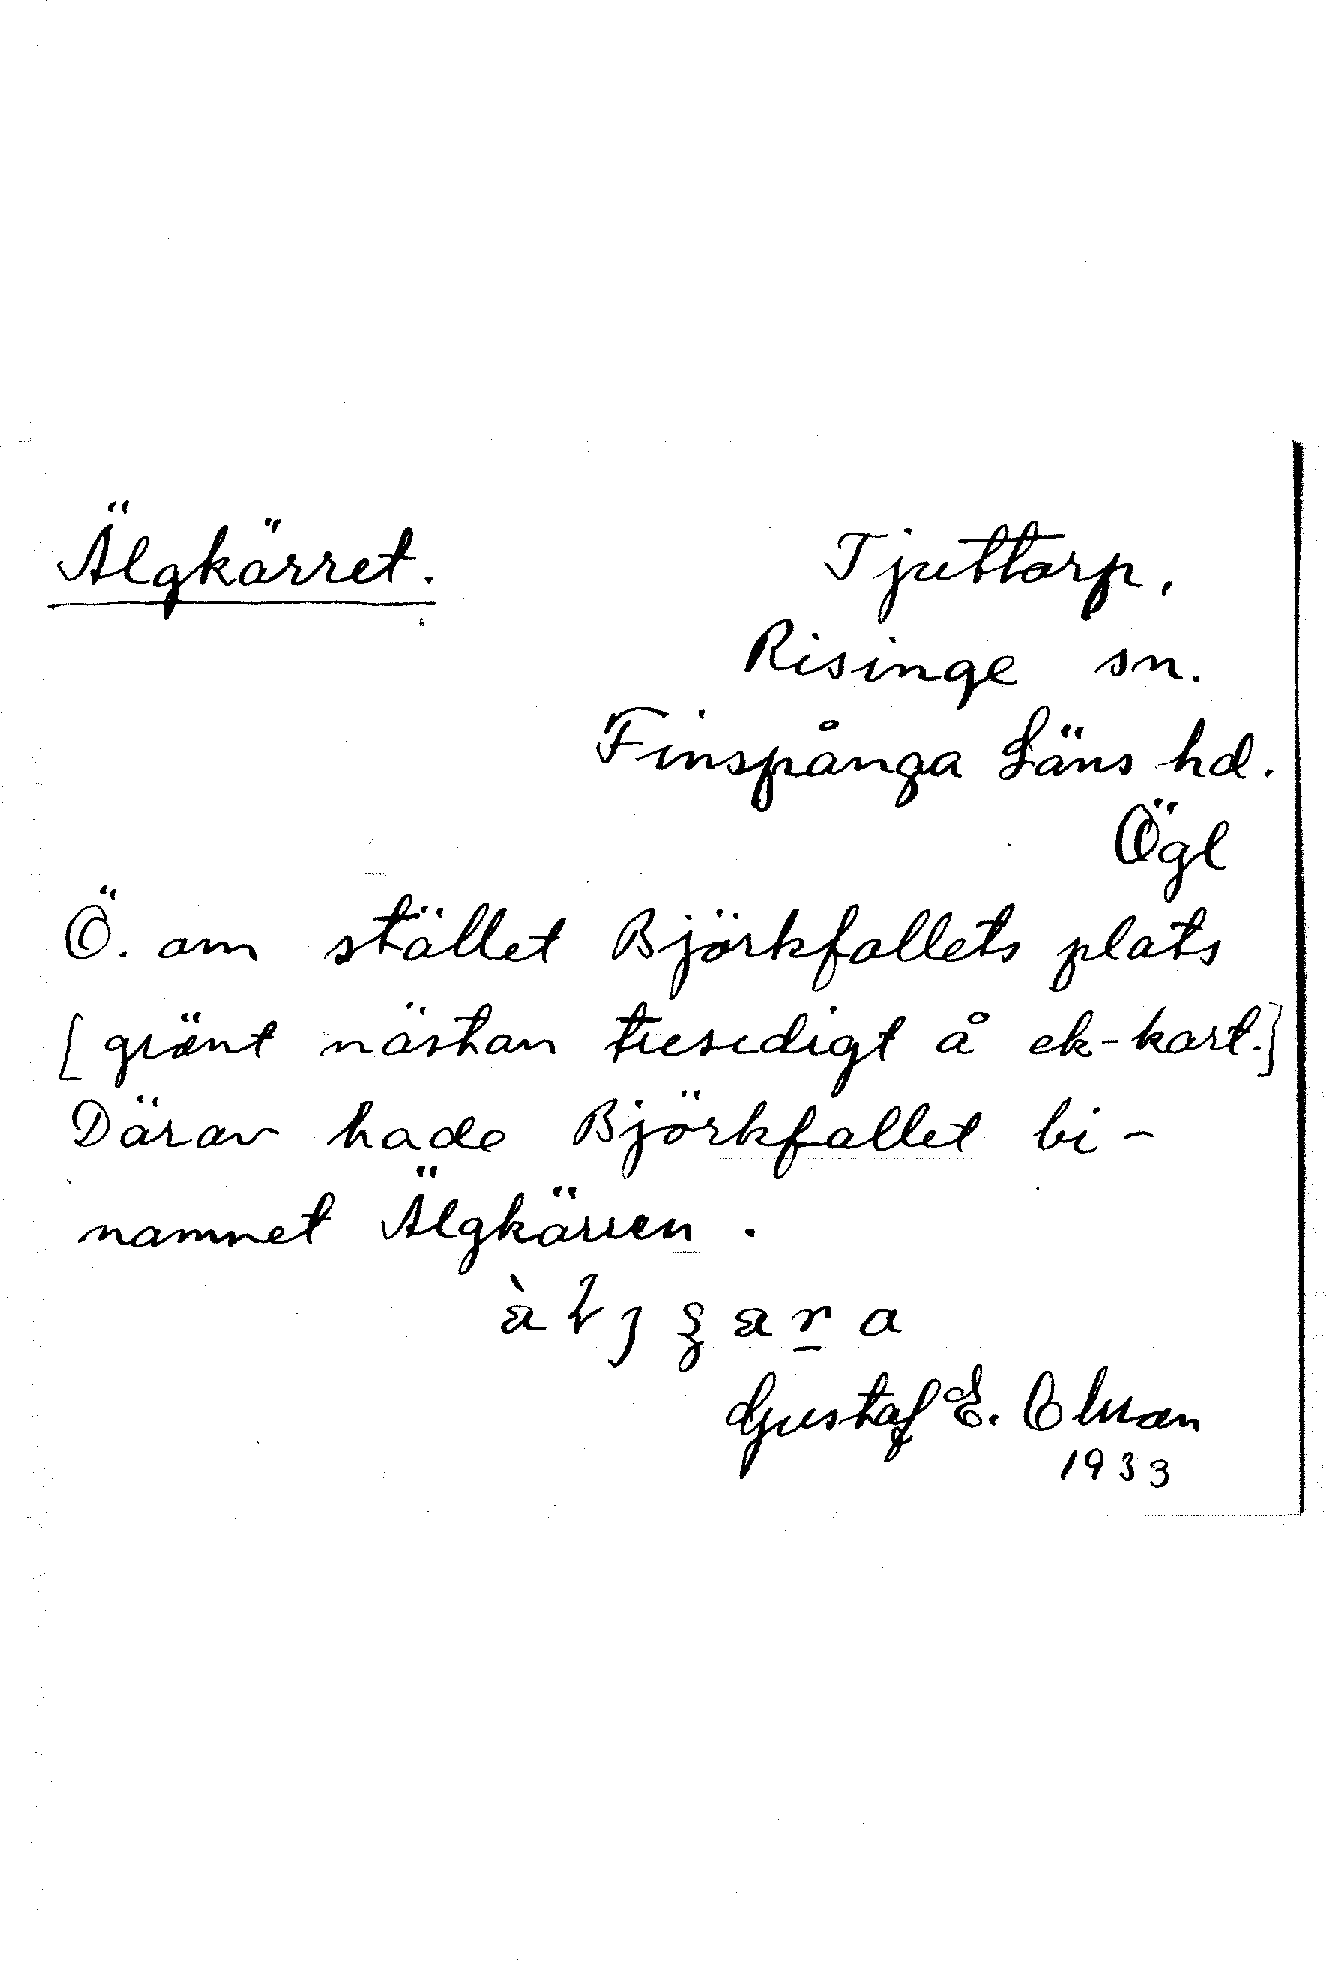 Älgkärret.
Tjuttorp,
Risinge sn.
Finspånga Läns hd.
Ögl
Ö. om stället Björkfallets plats
[grönt nästan tresidigt å ek-kart.]
Därav hade Björkfallet bi-
namnet Älgkärren.
Gustaf E.
1933